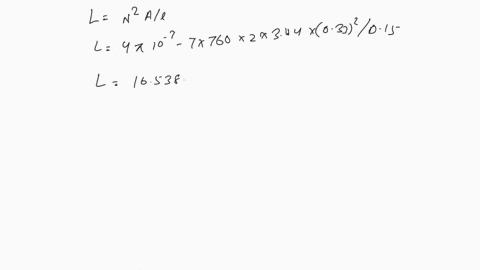 L = N² A/l
L = 4π 10⁻⁷ - 7 × 760 × 2 × 3.44 × (0.30)² / 0.15
L = 16.538